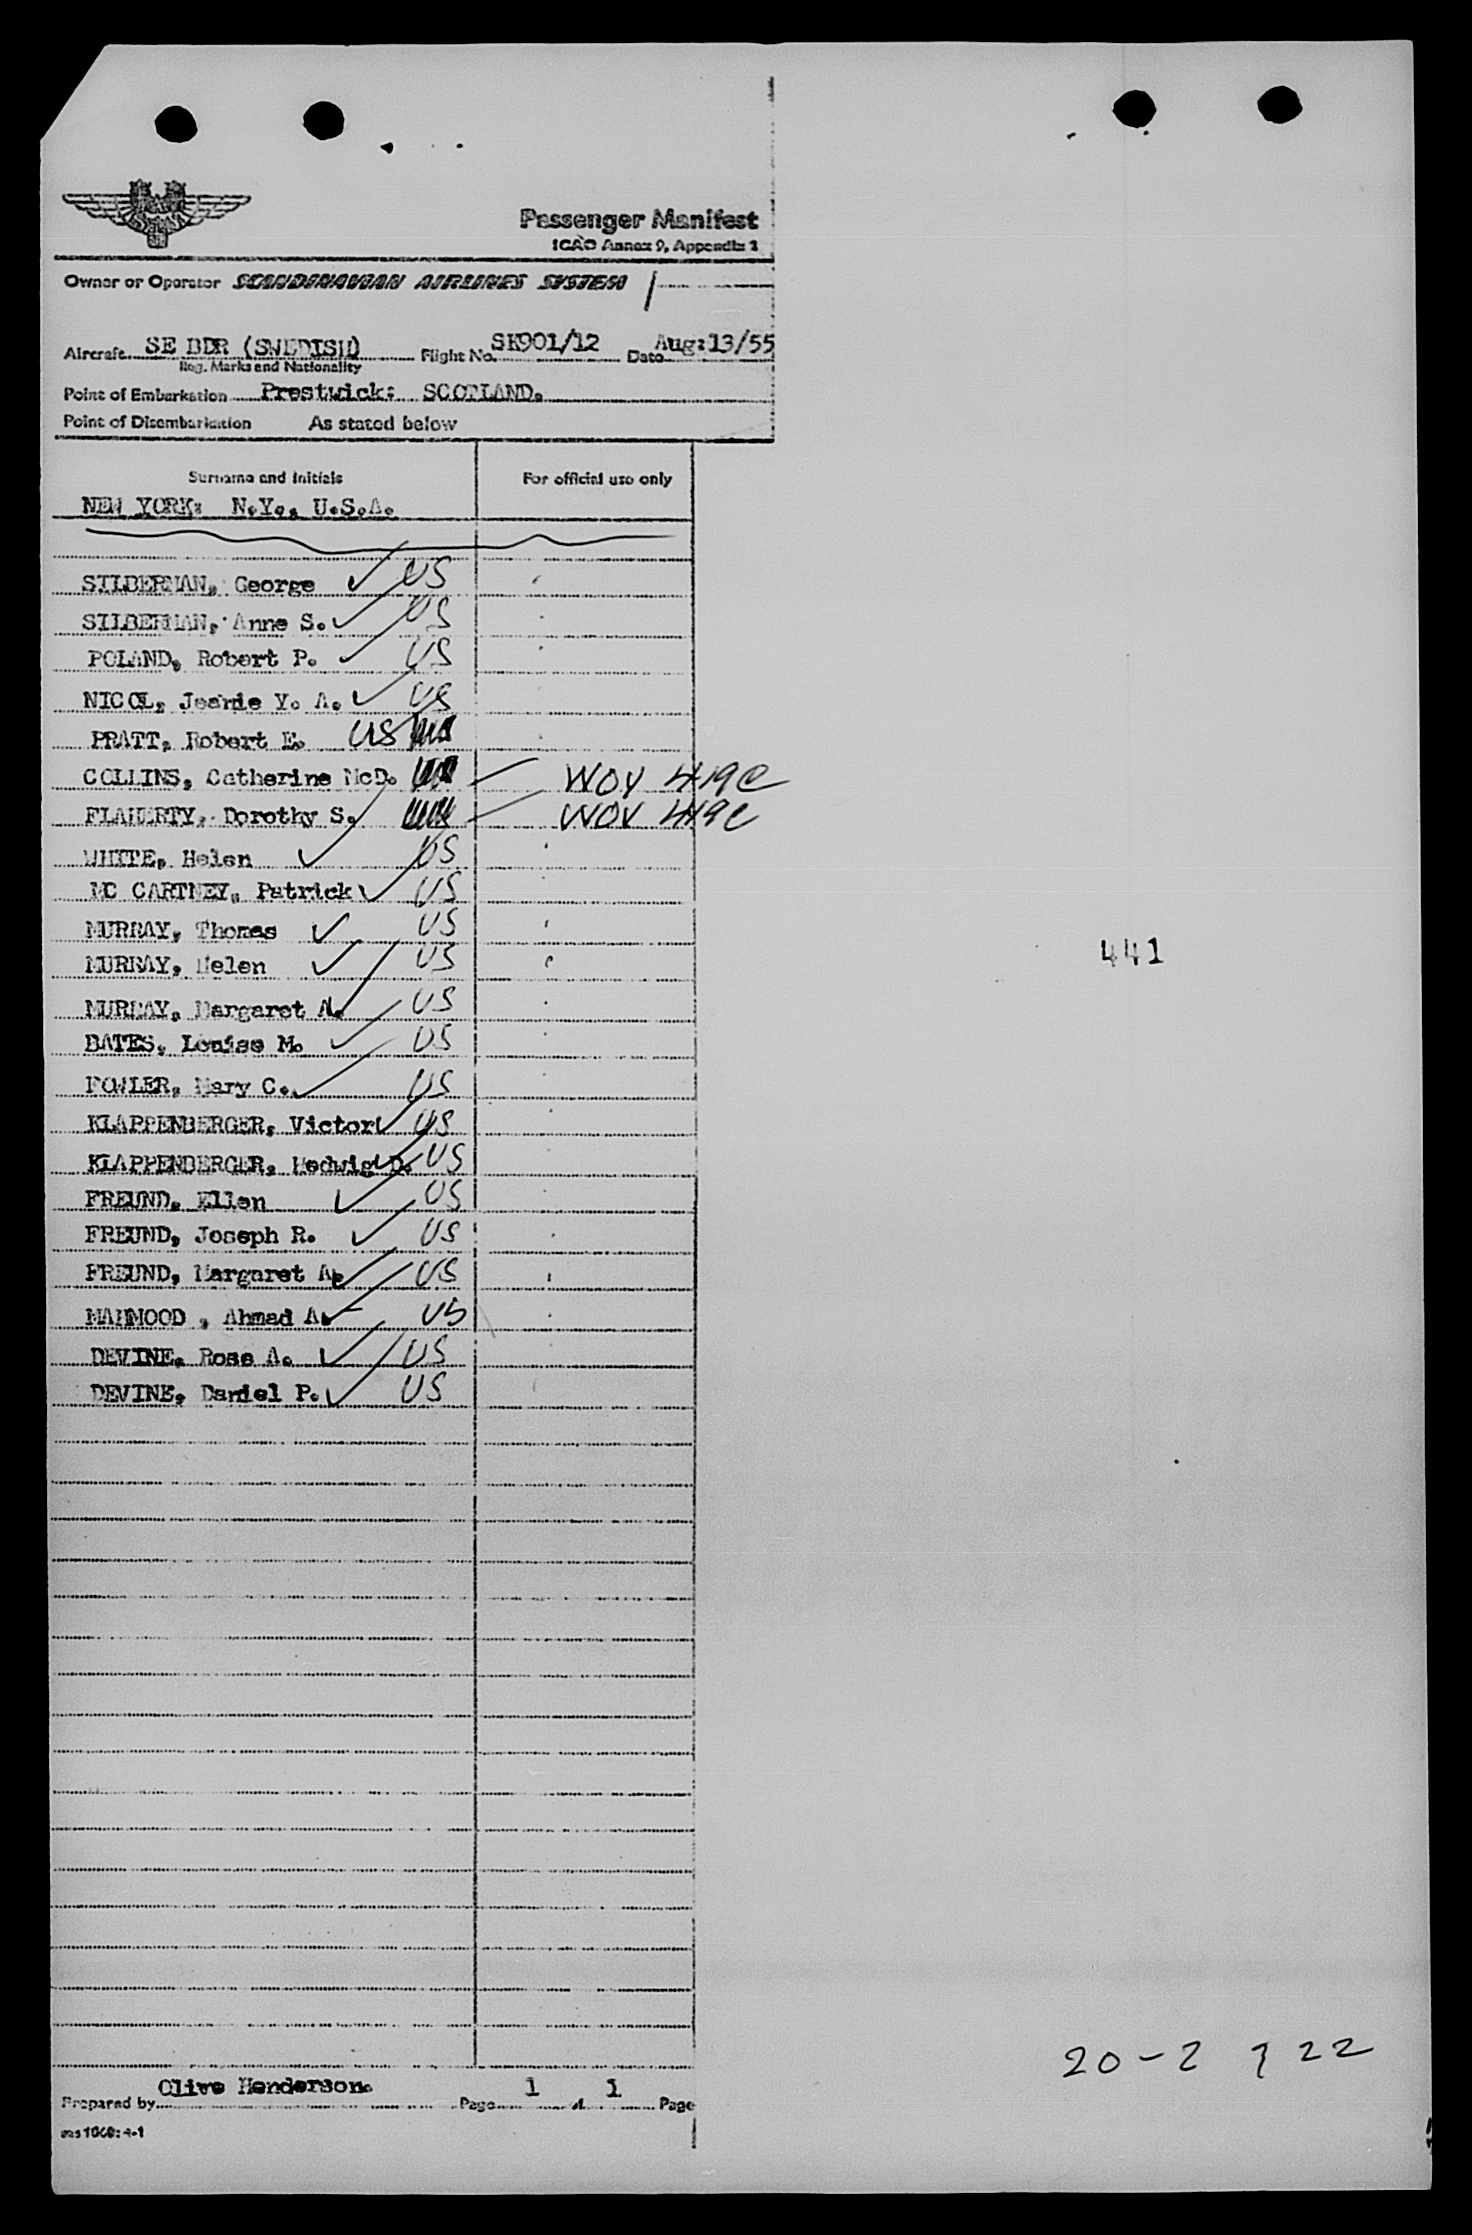 Passenger Manifest
ICAO Annex 9, Appendix 2
Owner or Operator SCANDINAVIAN AIRLINES SYSTEM
Aircraft SE BDR (SWEDISH) Flight No. SK901/12 Date Aug:13/55
Reg. Marks and Nationality
Point of Embarkation Prestwick: SCOTLAND.
Point of Disembarkation As stated below
Surname and Initials For official use only
NEW YORK: N.Y., U.S.A.
SILBERMAN, George US
SILBERMAN, Anne S. US
POLAND, Robert P. US
NICOL, Jeanie Y. A. US
PRATT, Robert E. US
COLLINS, Catherine McD. WOV 419C
FLAHERTY, Dorothy S. WOV 419C
WHITE, Helen US
MC CARTNEY, Patrick US
MURRAY, Thomas US
MURRAY, Helen US
MURRAY, Margaret A. US
441
BATES, Louise M. US
FOWLER, Mary C. US
KLAPPENBERGER, Victor US
KLAPPENBERGER, Hedwig D. US
FREUND, Ellen US
FREUND, Joseph R. US
FREUND, Margaret A. US
MAHMOOD , Ahmad A. US
DEVINE, Rose A. US
DEVINE, Daniel P. US
20-2 722
Prepared by Olive Henderson. Page 1 of 1 Page